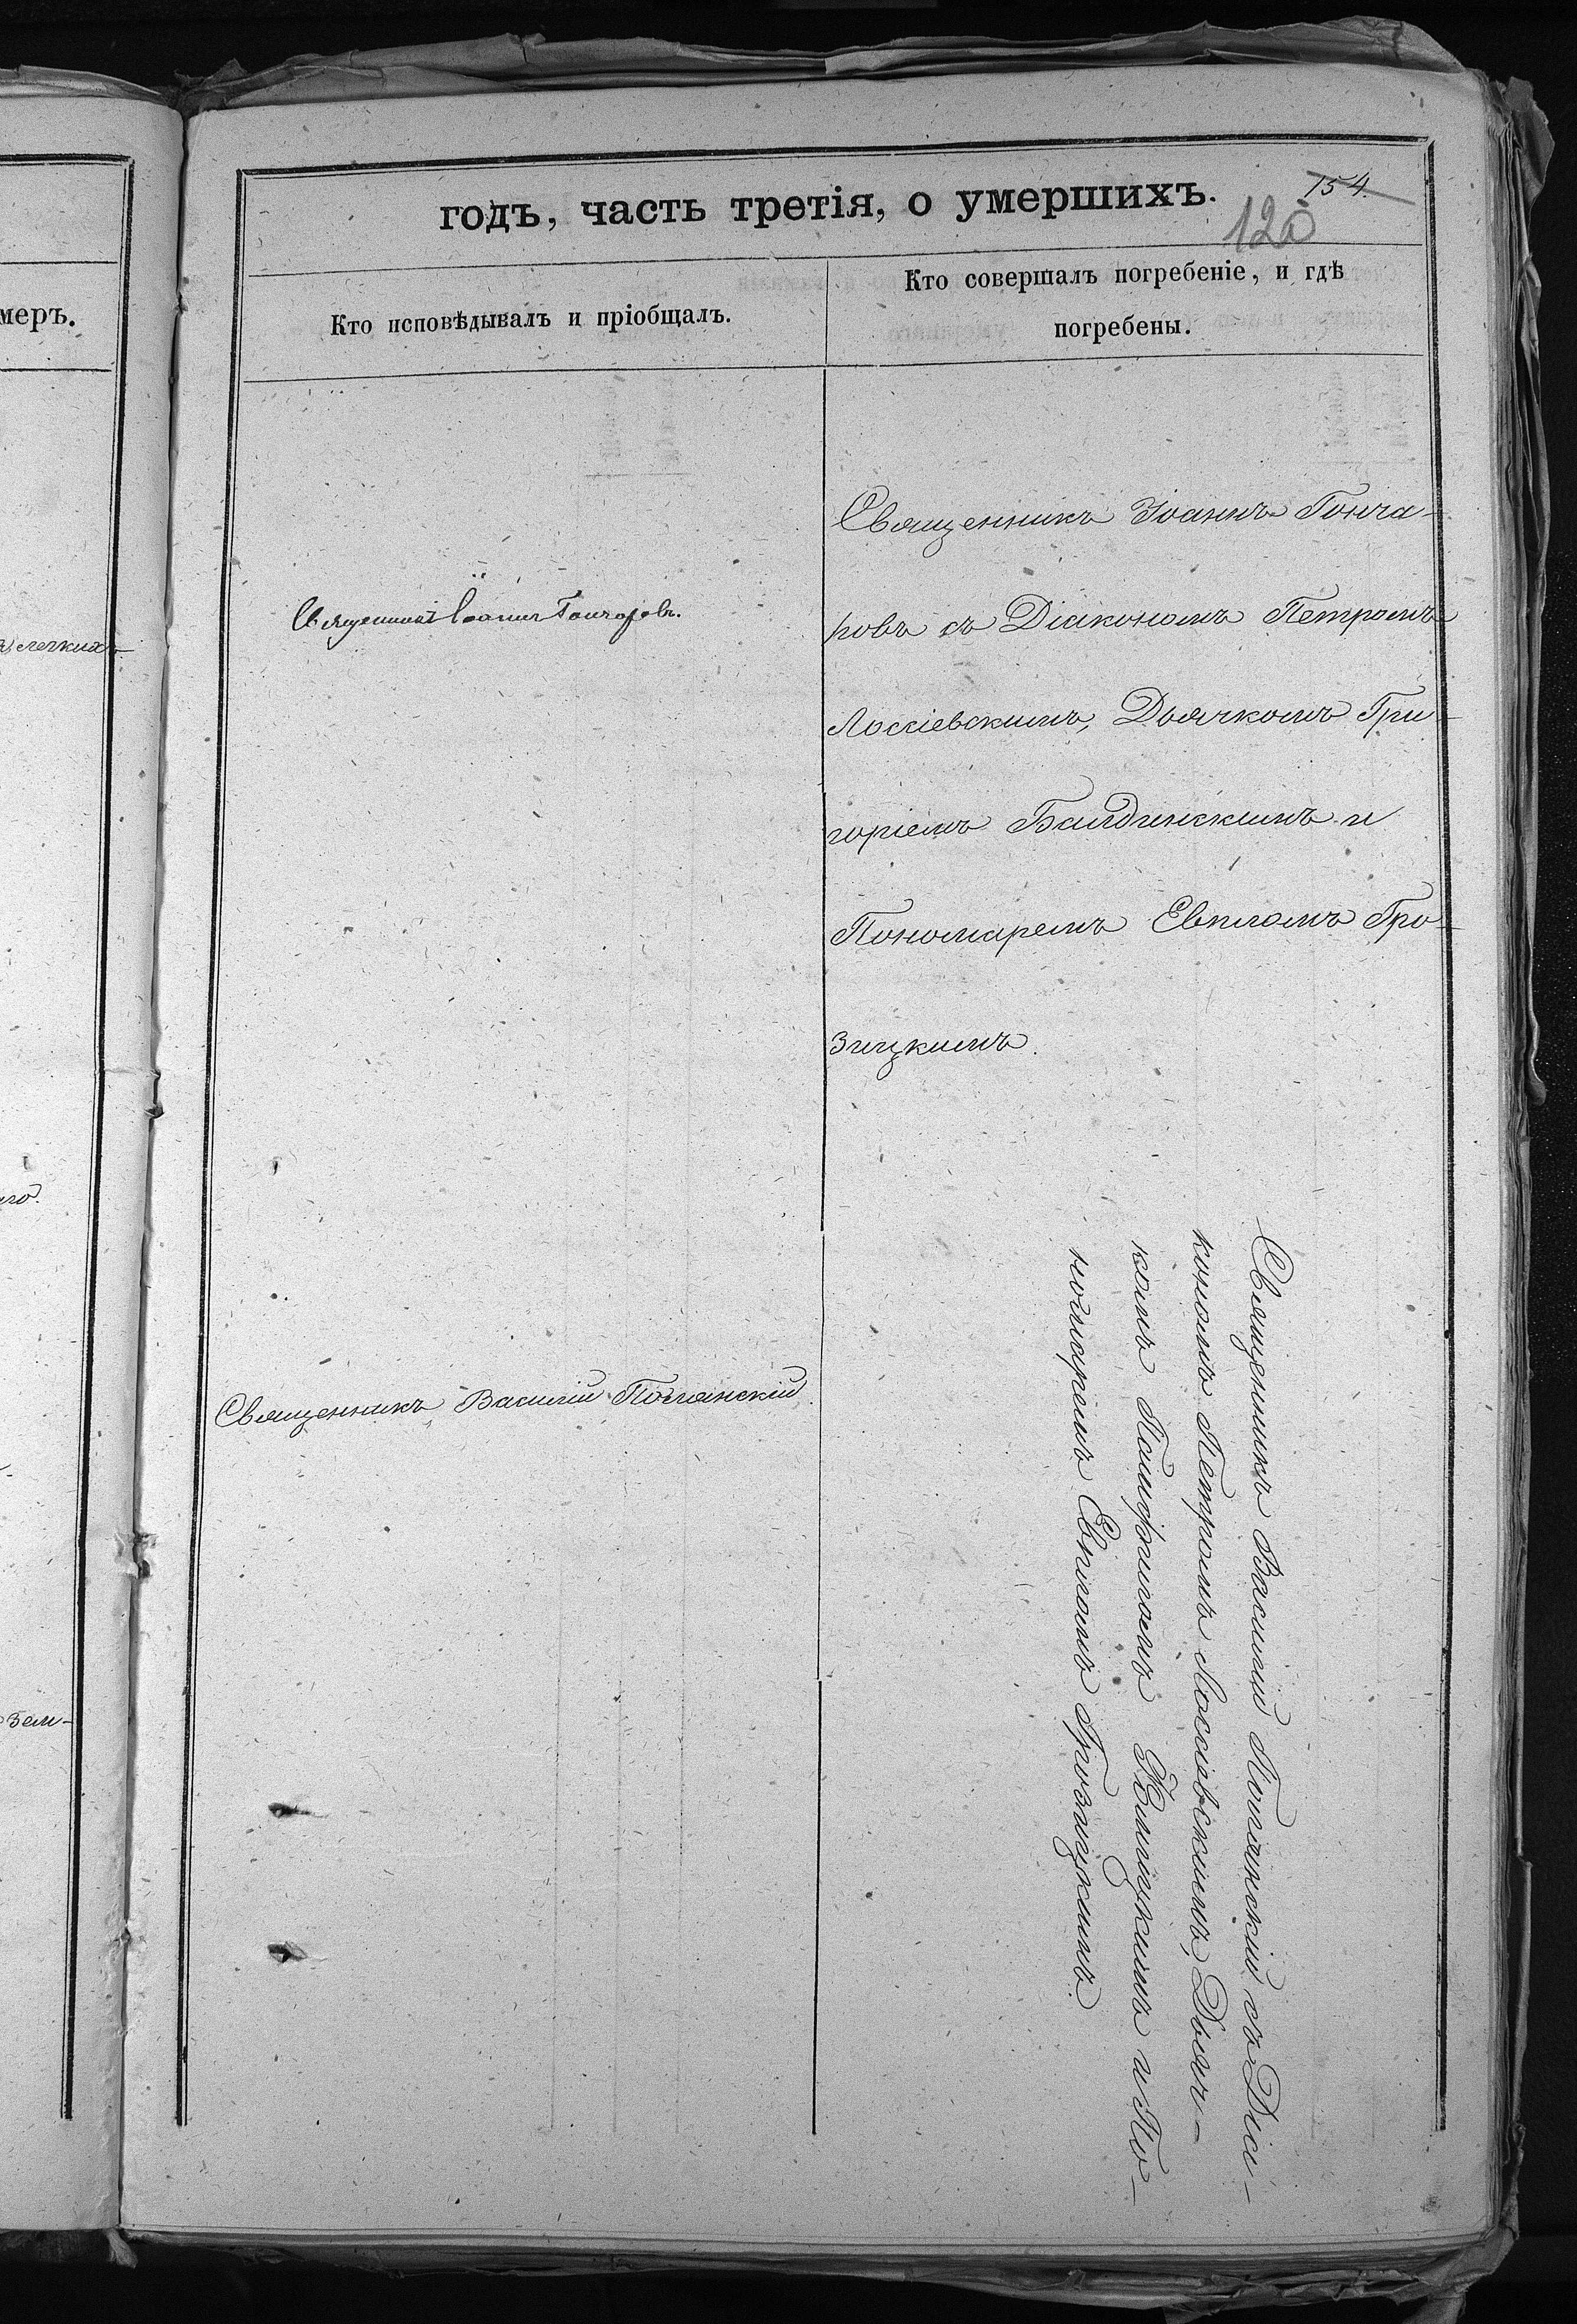 меръ.
легкихъ
го.
зем-
годъ, часть третія, о умершихъ.
154.
120
Кто исповѣдывалъ и пріобщалъ.
Кто совершалъ погребеніе, и гдѣ
погребены.
Священникъ Іоаннъ Гончаровъ.
Священникъ Іоаннъ Гонча-
ровъ съ Діакономъ Петромъ
Лоскіевскимъ, Дьячкомъ Гри-
горіемъ Балдинскимъ и
Пономаремъ Евпломъ Гро-
зицкимъ.
Священникъ Василій Полянскій.
Священникъ Василій Полянскій съ Діа-
кономъ Петромъ Лоскіевскимъ, Дьяч-
комъ Памфиломъ и По-
номаремъ Евпломъ Грозицкимъ.